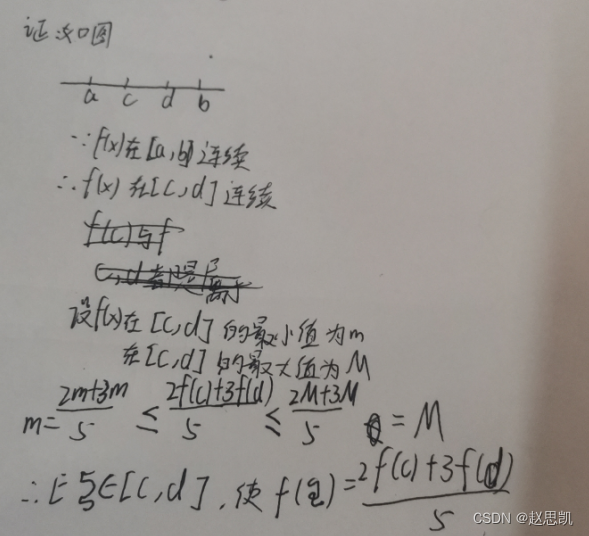 证如图
a c d b
∵f(x)在[a,b]连续
∴f(x)在[c,d]连续
f(c)与f
c,d都是属于
设f(x)在[c,d]的最小值为m
在[c,d]的最大值为M
m=(2m+3m)/5 ≤ (2f(c)+3f(d))/5 ≤ (2M+3M)/5 = M
∴∃ξ∈[c,d],使f(ξ)=(2f(c)+3f(d))/5
CSDN @赵思凯